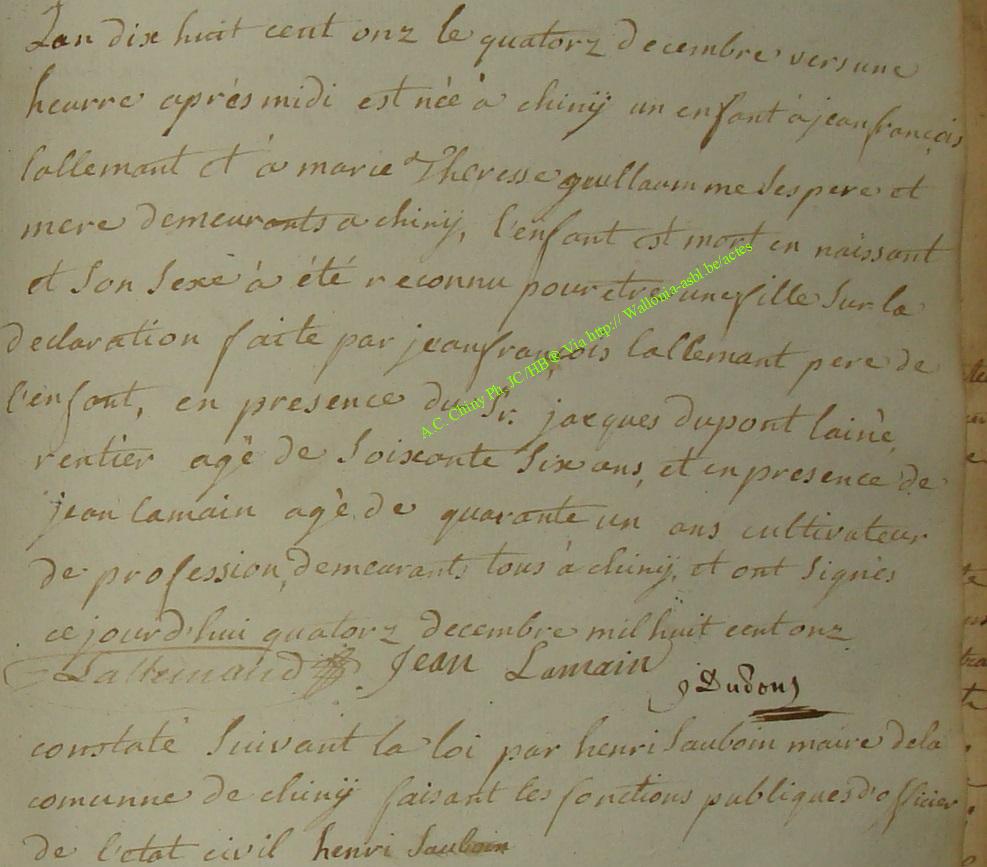 Lan dix huit cent onz le quatorz decembre vers une
heurre aprés midi est néé à chinÿ un enfant à jean françois
lallemant et à marie Theresse guillaumme Ses pere et
mere demeurants a chiny, l'enfant est mort en naissant
et Son Sexe à été reconnu pour etre une fille Sur la
declaration faite par jean françois lallemant pere de
l'enfant, en presence du Sr. jacques dupont lainé
rentier agé de Soixante Six ans, et en presence de
jean lamain agé de quarante un ans cultivateur
de profession, demeurants tous à chiny, et ont Signés
ce jourd'hui quatorz decembre mil huit cent onz
Lallemand Jean Lamain
constaté Suivant la loi par henri Sauboin maire dela
comunne de chinÿ faisant les fonctions publiques d'officier
de l'etat civil henri Sauboin
A.C. Chiny Ph. JC /HB® Via http:// Wallonia-asbl.be/actes